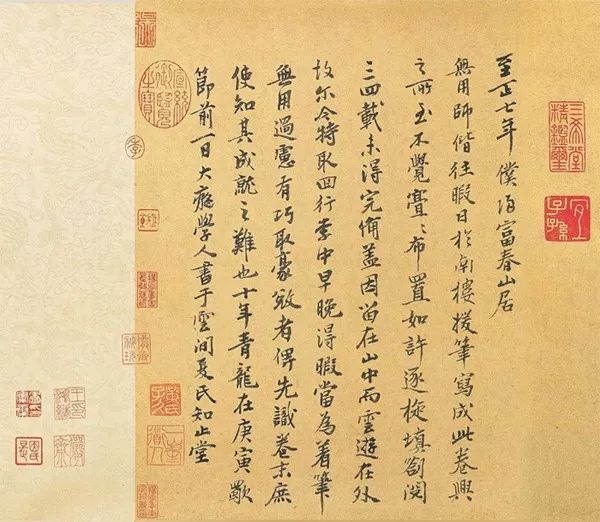 三希堂精鑑璽
宜子孫
至正七年僕歸富春山居
無用師偕往暇日於南樓援筆寫成此卷興
之所至不覺亹〻布置如許逐旋填劄閱
三四載未得完備盖因留在山中而雲遊在外
故尔今特取回行李中早晚得暇當為着筆
無用過慮有巧取豪敚者俾先識卷末庶
使知其成就之難也十年青龍在庚寅歜
節前一日大癡學人書于雲間夏氏知止堂
宣統御覽之寶